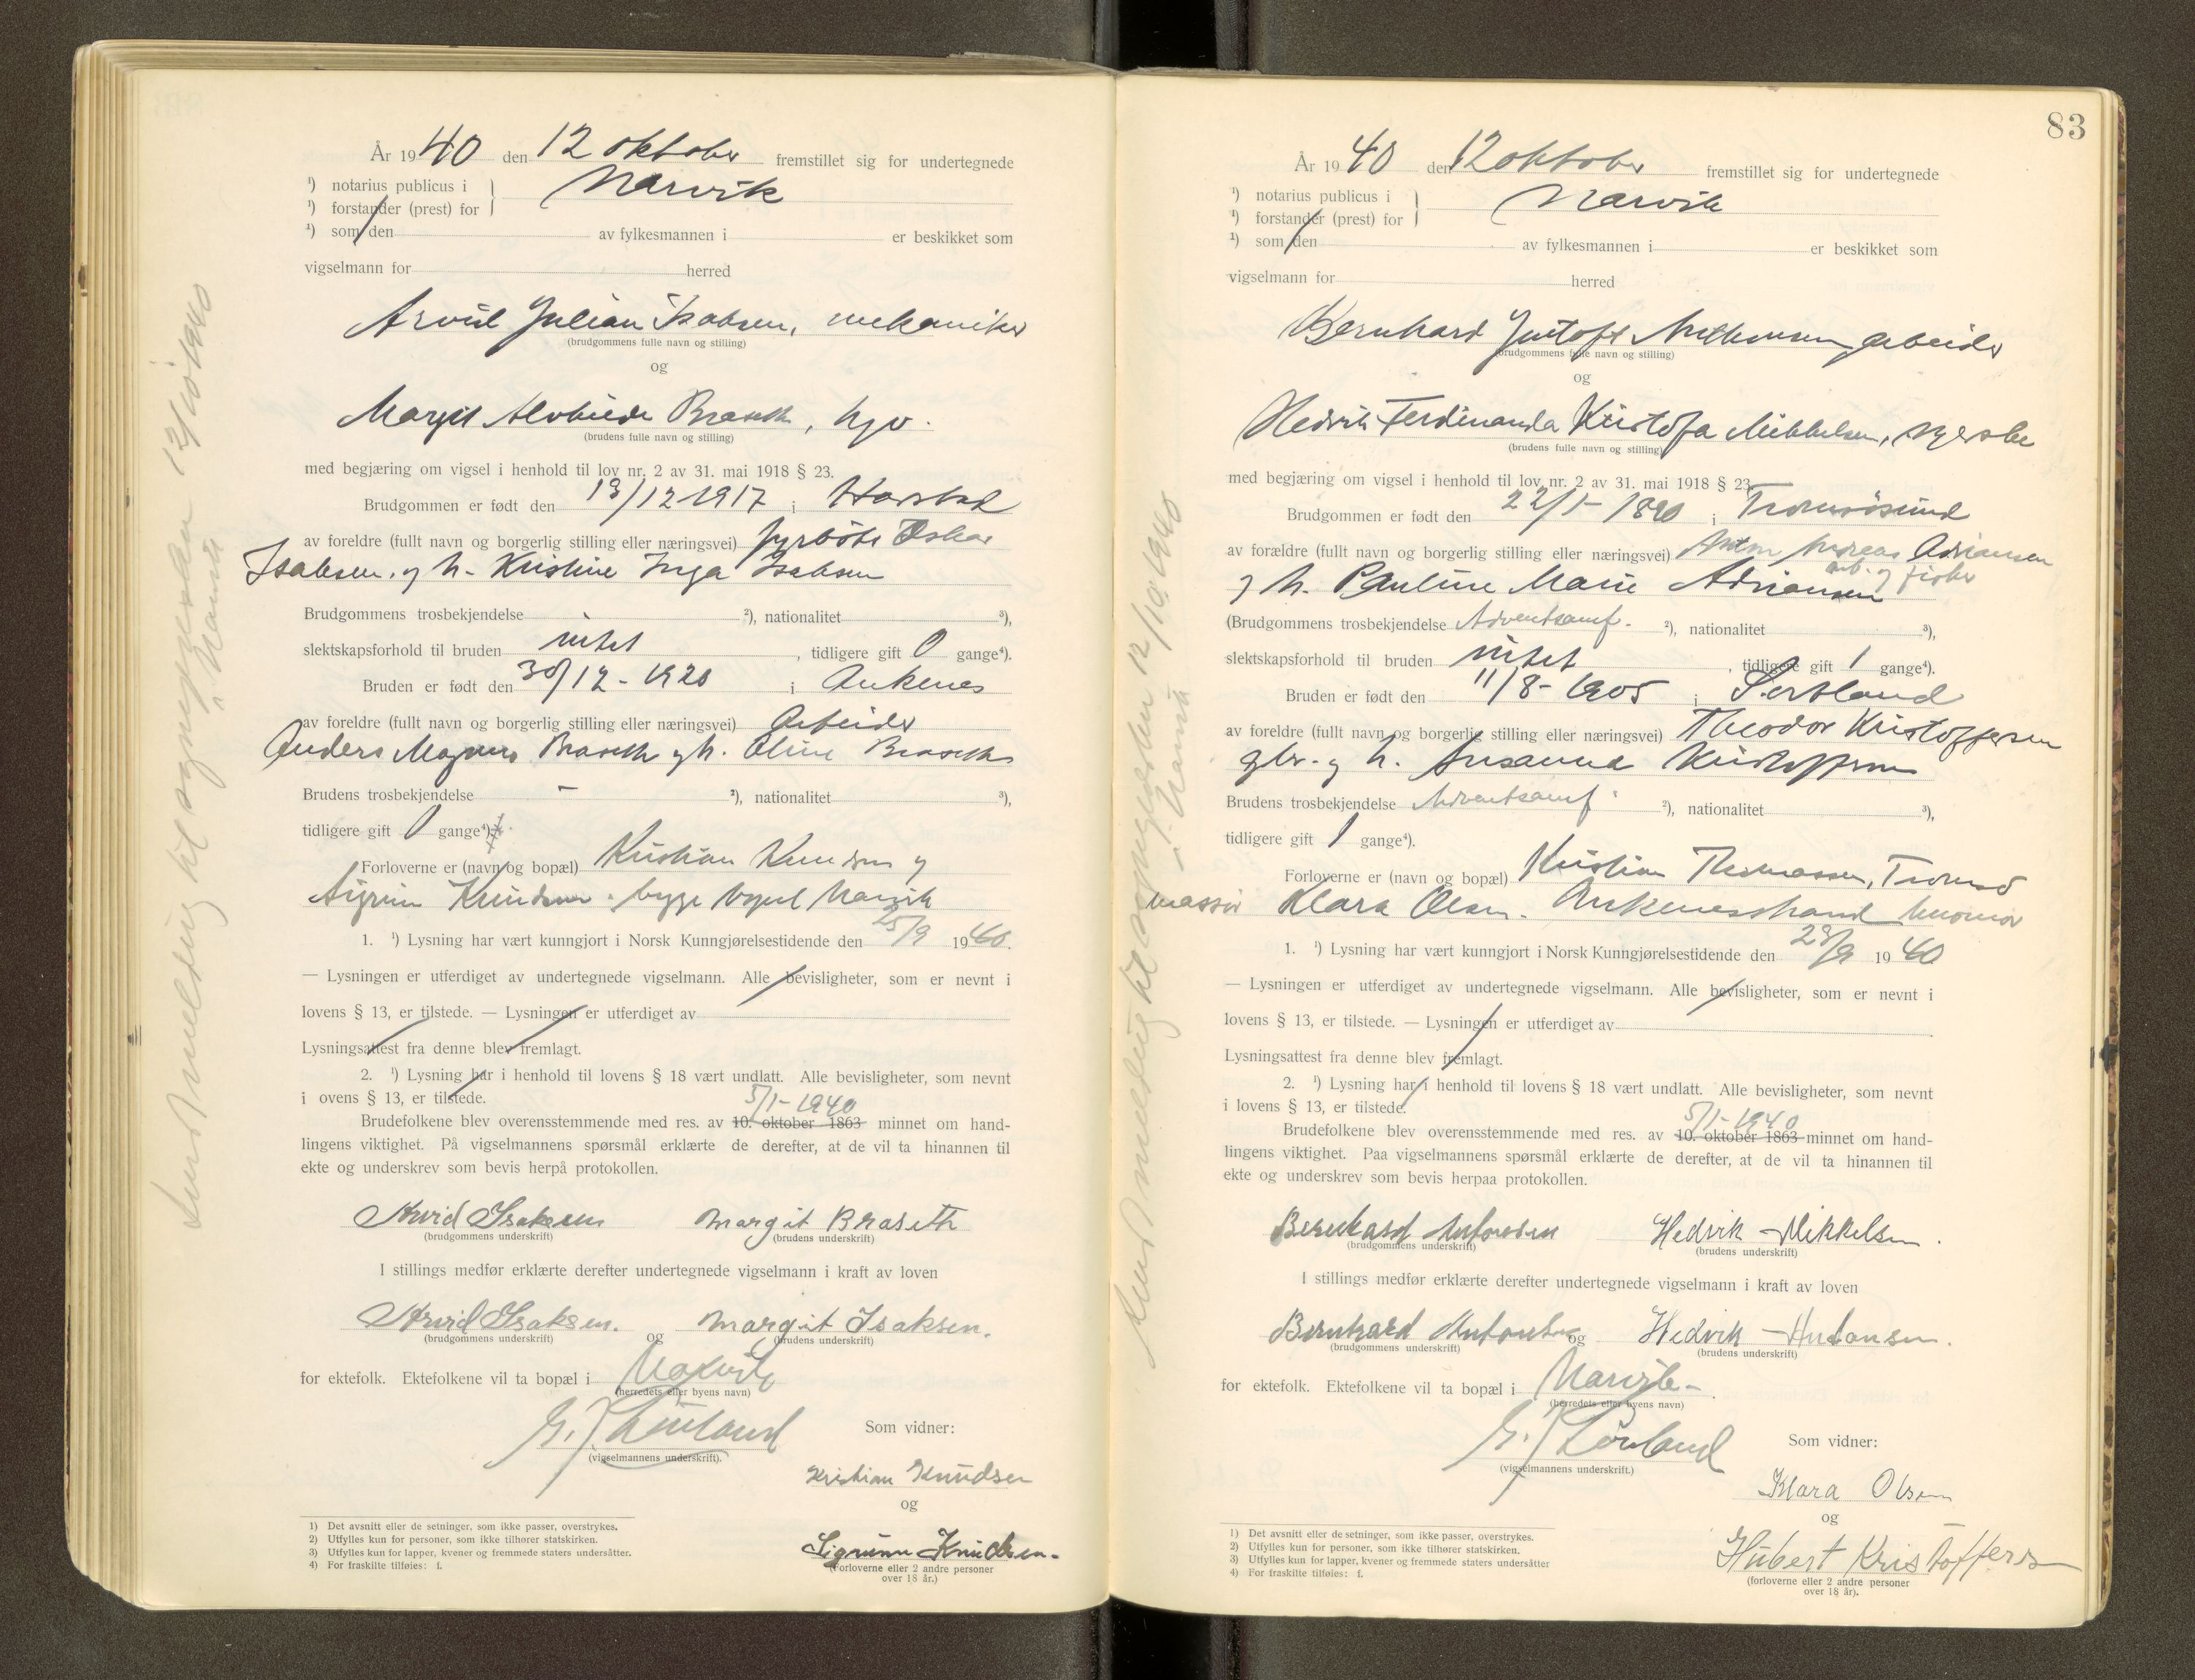 År 1940 den 12 oktober fremstillet sig for undertegnede
¹) notarius publicus i } Narvik
¹) forstander (prest) for
¹) som den av fylkesmannen i er beskikket som
vigselmann for herred
Arvid Julian Isaksen, mekaniker
(brudgommens fulle navn og stilling)
og
Margit Alvhilde Braseth, hjv.
(brudens fulle navn og stilling)
med begjæring om vigsel i henhold til lov nr. 2 av 31. mai 1918 § 23.
Brudgommen er født den 13/12-1917 i Harstad
av foreldre (fullt navn og borgerlig stilling eller næringsvei) fyrbøter Oskar
Isaksen og h. Kristine Inga Isaksen
Brudgommens trosbekjendelse ²), nationalitet ³),
slektskapsforhold til bruden intet, tidligere gift 0 gange⁴).
Bruden er født den 30/12-1920 i Ankenes
av foreldre (fullt navn og borgerlig stilling eller næringsvei) Arbeider
Anders Magnus Braseth og h. Oline Braseth
Brudens trosbekjendelse - ²), nationalitet ³),
tidligere gift 0 gange⁴)
Forloverne er (navn og bopæl) Kristian Knudsen og
Sigrun Knudsen. begge Narvik
1. ¹) Lysning har vært kunngjort i Norsk Kunngjørelsestidende den 25/9 1940.
— Lysningen er utferdiget av undertegnede vigselmann. Alle bevisligheter, som er nevnt i
lovens § 13, er tilstede. — Lysningen er utferdiget av
Lysningsattest fra denne blev fremlagt.
2. ¹) Lysning har i henhold til lovens § 18 vært undlatt. Alle bevisligheter, som nevnt
i ovens § 13, er tilstede.
5/1-1940
Brudefolkene blev overensstemmende med res. av 10. oktober 1863 minnet om hand-
lingens viktighet. På vigselmannens spørsmål erklærte de derefter, at de vil ta hinannen til
ekte og underskrev som bevis herpå protokollen.
Arvid Isaksen Margit Braseth
(brudgommens underskrift) (brudens underskrift)
I stillings medfør erklærte derefter undertegnede vigselmann i kraft av loven
Arvid Isaksen. og Margit Isaksen.
(brudgommens underskrift) (brudens underskrift)
for ektefolk. Ektefolkene vil ta bopæl i Narvik
(herredets eller byens navn)
(vigselmannens underskrift).
Som vidner:
Kristian Knudsen
og
Sigrunn Knudsen.
(forloverne eller 2 andre personer
over 18 år.)
1) Det avsnitt eller de setninger, som ikke passer, overstrykes.
2) Utfylles kun for personer, som ikke tilhører statskirken.
3) Utfylles kun for lapper, kvener og fremmede staters undersåtter.
4) For fraskilte tilføies: f.
Sendt melding til sognepresten 12/10 1940
i Narvik
83
År 1940 den 12 oktober fremstillet sig for undertegnede
¹) notarius publicus i } Narvik
¹) forstander (prest) for
¹) som den av fylkesmannen i er beskikket som
vigselmann for herred
Bernhard Justoft Antonsen arbeider
(brudgommens fulle navn og stilling)
og
Hedvik Ferdinanda Kristofa Mikkelsen, syerske
(brudens fulle navn og stilling)
med begjæring om vigsel i henhold til lov nr. 2 av 31. mai 1918 § 23.
Brudgommen er født den 22/1-1890 i Tromsøsund
av forældre (fullt navn og borgerlig stilling eller næringsvei) Anton Andreas Adriansen
arb. og fisker
og h. Pauline Marie Adriansen
(Brudgommens trosbekjendelse Adventsamf. ²), nationalitet ³),
slektskapsforhold til bruden intet, tidligere gift 1 gange⁴).
Bruden er født den 11/8-1905 i Sortland
av foreldre (fullt navn og borgerlig stilling eller næringsvei) Theodor Kristoffersen
gbr. og h. Susanna Kristoffersen
Brudens trosbekjendelse Adventsamf. ²), nationalitet ³),
tidligere gift 1 gange⁴).
Forloverne er (navn og bopæl) Kristian Thomassen, Tromsø
Klara Olsen. Ankenesstrand
1. ¹) Lysning har vært kunngjort i Norsk Kunngjørelsestidende den 23/9 1940
— Lysningen er utferdiget av undertegnede vigselmann. Alle bevisligheter, som er nevnt i
lovens § 13, er tilstede. — Lysningen er utferdiget av
Lysningsattest fra denne blev fremlagt.
2. ¹) Lysning har i henhold til lovens § 18 vært undlatt. Alle bevisligheter, som nevnt
i lovens § 13, er tilstede.
5/1-1940
Brudefolkene blev overensstemmende med res. av 10. oktober 1863 minnet om hand-
lingens viktighet. Paa vigselmannens spørsmål erklærte de derefter, at de vil ta hinannen til
ekte og underskrev som bevis herpaa protokollen.
Bernhard Antonsen Hedvik Mikkelsen.
(brudgommens underskrift) (brudens underskrift)
I stillings medfør erklærte derefter undertegnede vigselmann i kraft av loven
Bernhard Antonsen og Hedvik Antonsen.
(brudgommens underskrift) (brudens underskrift)
for ektefolk. Ektefolkene vil ta bopæl i Narvik
(herredets eller byens navn)
(vigselmannens underskrift.)
Som vidner:
Klara Olsen
og
Hubert Kristoffers
(forloverne eller 2 andre personer
over 18 år).
1) Det avsnitt eller de setninger, som ikke passer, overstrykes.
2) Utfylles kun for personer, som ikke tilhører statskirken.
3) Utfylles kun for lapper, kvener og fremmede staters undersåtter
4) For fraskilte tilføies: f.
Sendt melding til sognepresten 12/10 1940
i Narvik